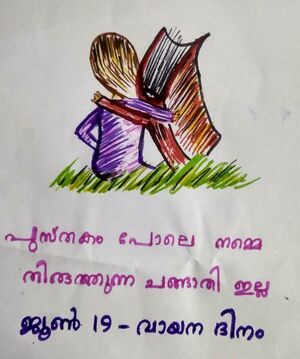 പുസ്തകം പോലെ നമ്മെ
തിരുത്തുന്ന ചങ്ങാതി ഇല്ല
ജൂൺ 19 - വായന ദിനം